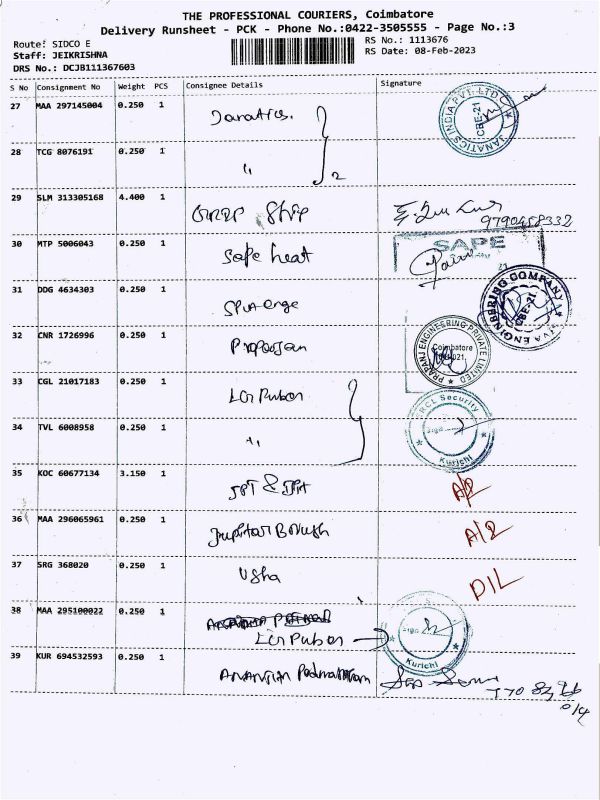 THE PROFESSIONAL COURIERS, Coimbatore
Delivery Runsheet - PCK - Phone No.:0422-3505555 - Page No.:3
Route: SIDCO E
Staff: JEIKRISHNA
DRS No.: DCJB111367603
RS No.: 1113676
RS Date: 08-Feb-2023
S No Consignment No Weight PCS Consignee Details Signature
27 MAA 297145004 0.250 1 Janatics.
JANATICS INDIA PVT. LTD CBE-21
28 TCG 8076191 0.250 1 " 2
29 SLM 313305168 4.400 1 Ship
9790458332
30 MTP 5006043 0.250 1 Safe heat
SAPE
31 DDG 4634303 0.250 1 Siva enge
SIVA ENGINEERING COMPANY CBE-21
32 CNR 1726996 0.250 1
PRAPANJ ENGINEERING PRIVATE LIMITED Coimbatore
33 CGL 21017183 0.250 1 LGR Puber
SRCL Security Kurichi
34 TVL 6008958 0.250 1 "
35 KOC 60677134 3.150 1 A/2
36 MAA 296065961 0.250 1 Jupitar Brush A/2
37 SRG 368020 0.250 1 Usha D/L
38 MAA 295100022 0.250 1
Kurichi
39 KUR 694532593 0.250 1